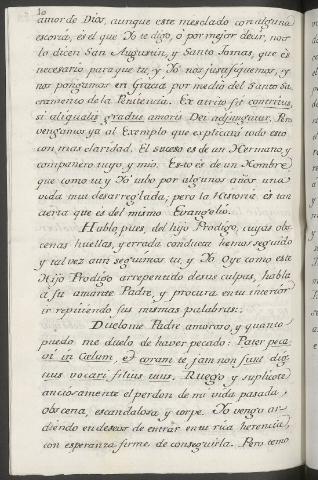 10
amor de Dios, aunque este mesclado con alguna
escoria, és el que Yo te digo, ò por mejor decir, nos
lo dicen San Augustin, y Santo Tomas, que és
necesario para que tu, y Yo nos justifiquemos, y
nos pongamos en Gracia por medio del Santo Sa
cramento de la Penitencia. Ex atrito fit contritus,
si aliqualis gradus amoris Dei adjungatur. Pero
vengamos ya al Exemplo que explicará todo esto
con mas claridad. El suceso es de un Hermano, y
compañero tuyo, y mio. Esto és de un Hombre
que como tu y Yo tubo por algunos años una
vida mui desarreglada, pero la Historia és tan
cierta que es del mismo Evangelio.
Hablo pues, del hijo Prodigo, cuyas obs
cenas huellas, y errada conducta hemos seguido
y tal vez aun seguimos tu, y Yo. Oye como este
Hijo Prodigo arrepentido de sus culpas, habla
á su amante Padre, y procura en tu interior
ir repitiendo sus mismas palabras:
Duelome Padre amoroso, y quanto
puedo me duelo de haver pecado: Pater peca
vi in Cœlum, et coram te jam non sum dig
nus vocari filius tuus. Ruego y suplicote
anciosamente el perdon de mi vida pasada,
obscena, escandalosa y torpe. Yo vengo ar
diendo en deseos de entrar en tu rica herencia,
con esperanza firme de conseguirla. Pero temo